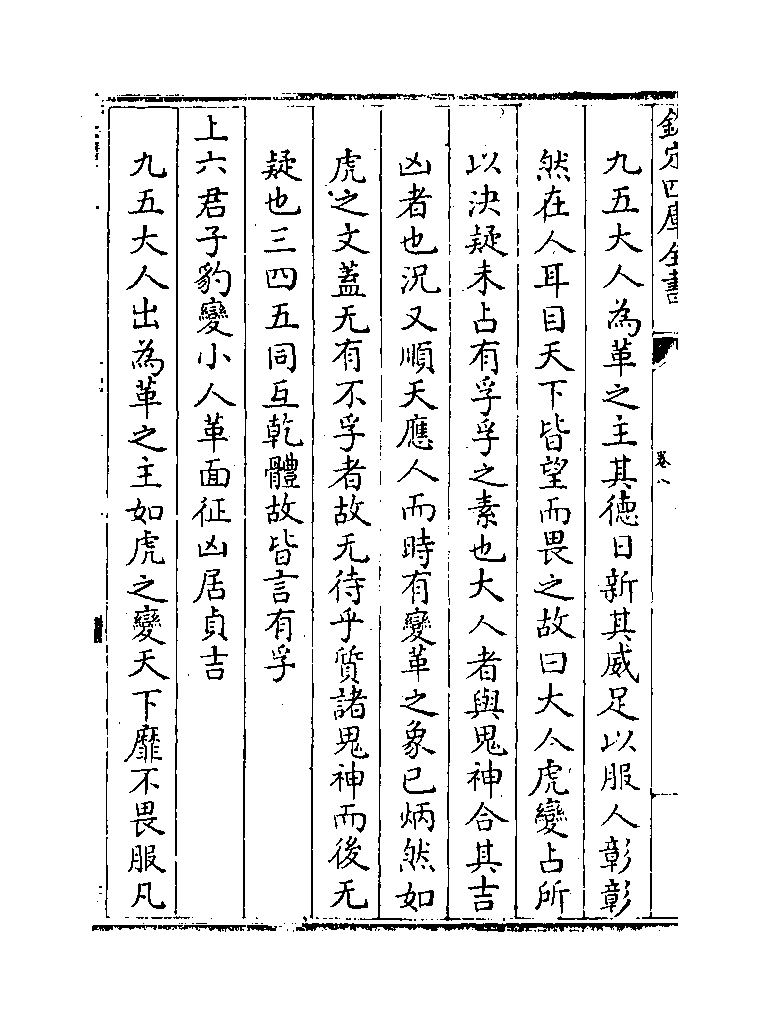 欽定四庫全書
卷八
九五大人為革之主其徳日新其威足以服人彰彰
然在人耳目天下皆望而畏之故曰大人虎變占所
以決疑未占有孚孚之素也大人者與鬼神合其吉
凶者也況又順天應人而時有變革之象已炳然如
虎之文蓋无有不孚者故无待乎質諸鬼神而後无
疑也三四五同互乾體故皆言有孚
上六君子豹變小人革面征凶居貞吉
九五大人出為革之主如虎之變天下靡不畏服凡